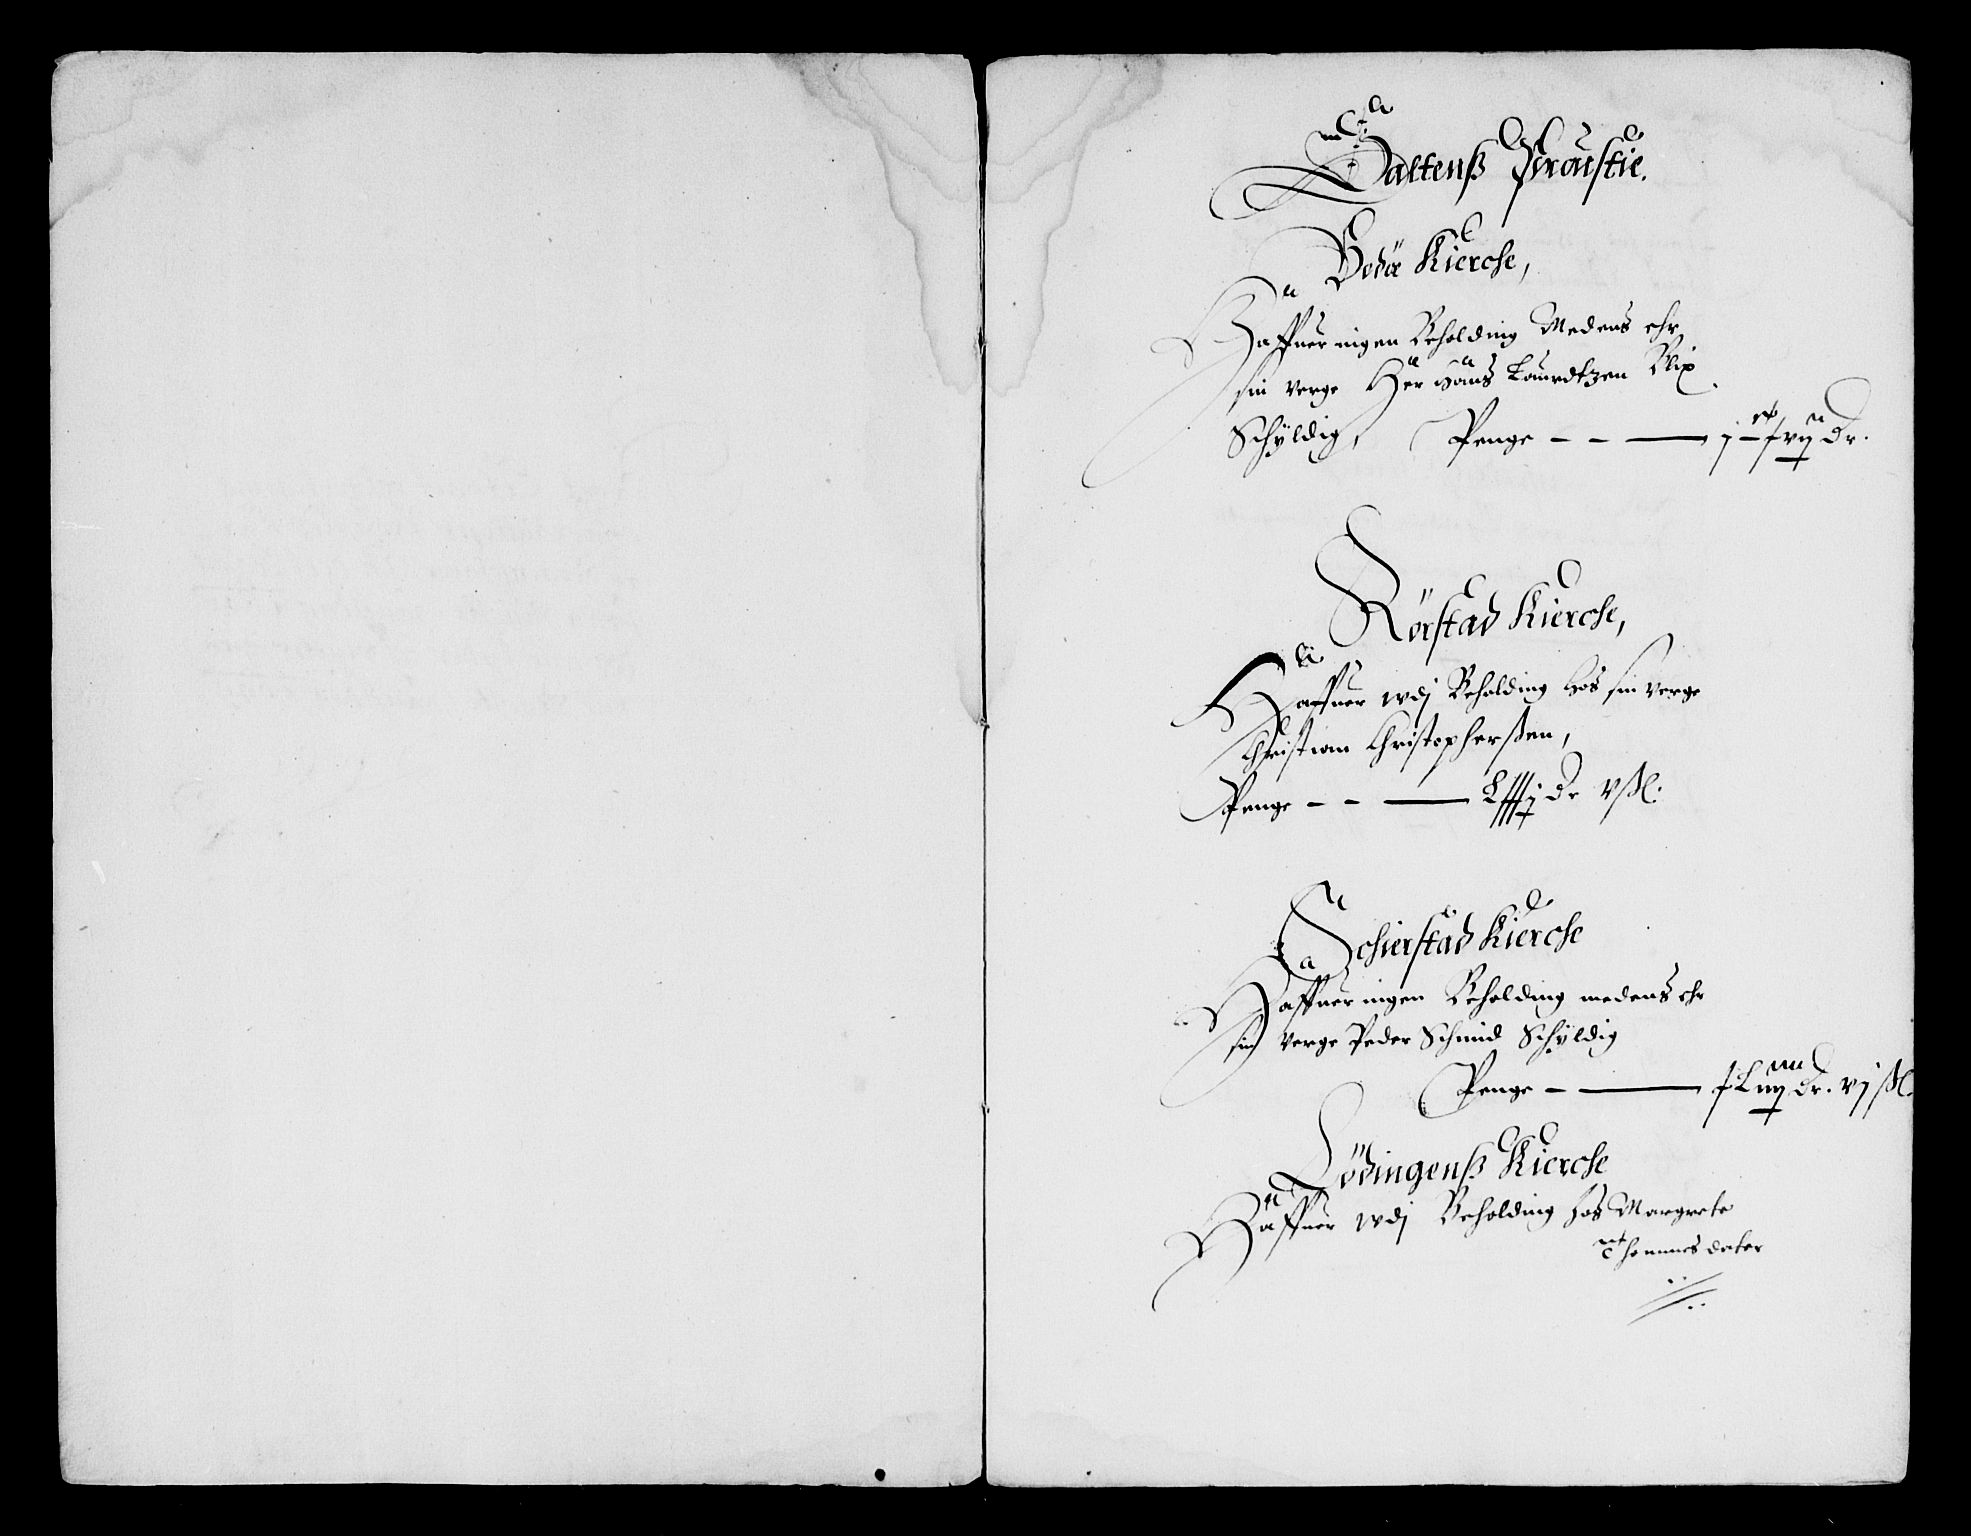 Saltenß Proustie.
Bodøe Kierche,
Haffuer ingen Beholding Medens ehr
sin verge Her Hans Lauredtzen Blix
Schÿldig, Penge
Rörstad Kierche,
Haffuer udj Beholding Hos sin verge
Christian Christopherßen,
Penge Dr vßl.
Schierstad Kierche
Haffuer ingen Beholding medens ehr
sin verge Peder Schmid Schÿldig
Penge Dr. vj ßl.
Lödingenß Kierche
Haffuer udj Beholding hos Margrete